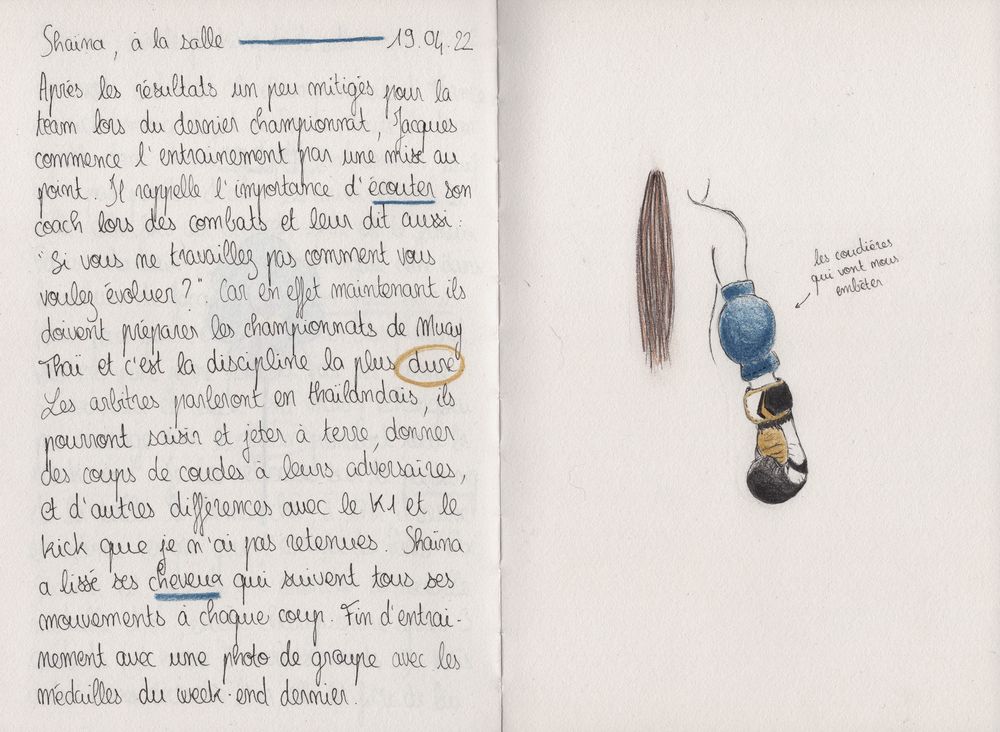 Shaïna, à la salle 19.04.22
Après les résultats un peu mitigés pour la
team lors du dernier championnat, Jacques
commence l'entrainement par une mise au
point. Il rappelle l'importance d'écouter son
coach lors des combats et leur dit aussi :
"Si vous ne travaillez pas comment vous
voulez évoluer ?". Car en effet maintenant ils
doivent préparer les championnats de Muay
Thaï et c'est la discipline la plus dure
Les arbitres parleront en thaïlandais, ils
pourront saisir et jeter à terre, donner
des coups de coudes à leurs adversaires,
et d'autres différences avec le K1 et le
kick que je n'ai pas retenues. Shaïna
a lissé ses cheveux qui suivent tous ses
mouvements à chaque coup. Fin d'entrai-
nement avec une photo de groupe avec les
médailles du week-end dernier.
les coudières
qui vont nous
embêter